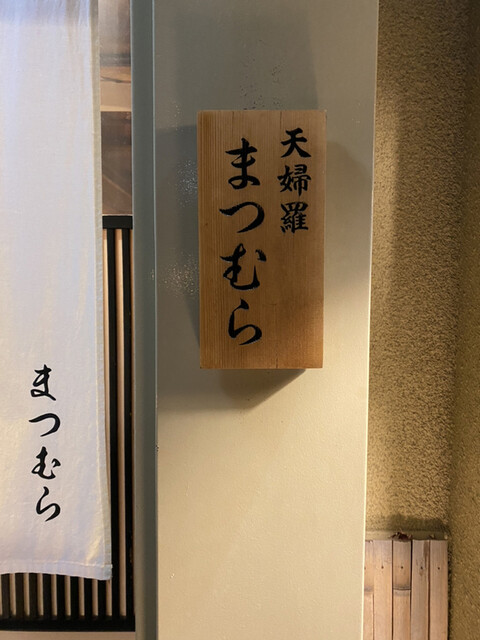 天婦羅
まつむら
まつむら